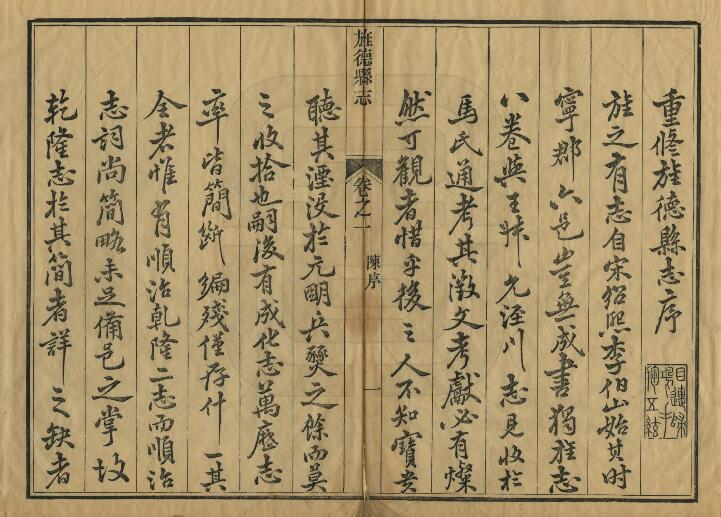 重修旌德縣志序
旌之有志自宋紹熙李伯山始其時
寧郡六邑豈無成書獨旌志
八卷與王棥允涇川志見收於
馬氏通考其徵文考獻必有燦
然可觀者惜乎後之人不知寶貴
旌德縣志
卷之一
陳序
一
聽其湮没於元明兵燹之餘而莫
之收拾也嗣後有成化志萬歷志
率皆簡斷編殘僅存什一其
全者惟有順治乾隆二志而順治
志詞尚簡略未足備邑之掌故
乾隆志於其簡者詳之缺者